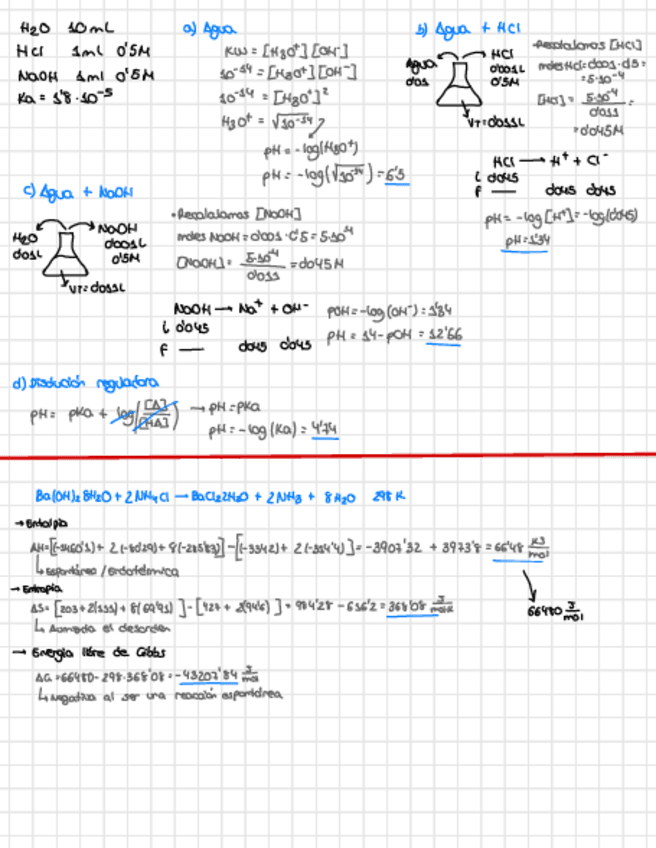 H₂O 10mL
HCl 1mL 0'5M
NaOH 1mL 0'5M
Ka = 1'8 · 10⁻⁵
a) Agua
Kw = [H₃O⁺] [OH⁻]
10⁻¹⁴ = [H₃O⁺] [OH⁻]
10⁻¹⁴ = [H₃O⁺]²
H₃O⁺ = √10⁻¹⁴
pH = -log(H₃O⁺)
pH = -log(√10⁻¹⁴) = 6'5
b) Agua + HCl
Agua
0'01
HCl
0'001L
0'5M
VT = 0'011L
·Recalculamos [HCl]
moles HCl = 0'001 · 0'5 =
= 5·10⁻⁴
[HCl] = 5·10⁻⁴ / 0'011 =
= 0'045M
HCl → H⁺ + Cl⁻
i 0'045
f — 0'045 0'045
pH = -log [H⁺] = -log(0'045)
pH = 1'34
c) Agua + NaOH
H₂O
0'01L
NaOH
0'001L
0'5M
VT = 0'011L
·Recalculamos [NaOH]
moles NaOH = 0'001 · 0'5 = 5·10⁻⁴
[NaOH] = 5·10⁻⁴ / 0'011 = 0'045M
NaOH → Na⁺ + OH⁻
i 0'045
f — 0'045 0'045
pOH = -log (OH⁻) = 1'34
pH = 14 - pOH = 12'66
d) Disolución reguladora
pH = pKa + log([A] / [HA]) → pH = pKa
pH = -log (Ka) = 4'74
Ba(OH)₂ 8H₂O + 2NH₄Cl → BaCl₂ 2H₂O + 2NH₃ + 8H₂O 298K
→ Entalpía
ΔH = [(-1460'1) + 2(-80'29) + 8(-285'83)] - [(-3342) + 2(-314'4)] = -3907'32 + 3973'8 = 66'48 KJ/mol
↳ Espontánea / Endotérmica
66480 J/mol
→ Entropía
ΔS = [203 + 2(111) + 8(69'91)] - [427 + 2(94'6)] = 984'28 - 616'2 = 368'08 J/mol·K
↳ Aumenta el desorden
→ Energía libre de Gibbs
ΔG = 66480 - 298·368'08 = -43207'84 J/mol
↳ Negativa al ser una reacción espontánea